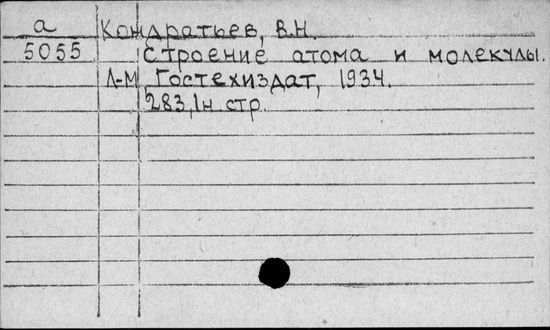 а Кондратьев, В.Н.
5055 Строение атома и молекулы.
Л-М, Гостехиздат, 1934.
283,1н стр.